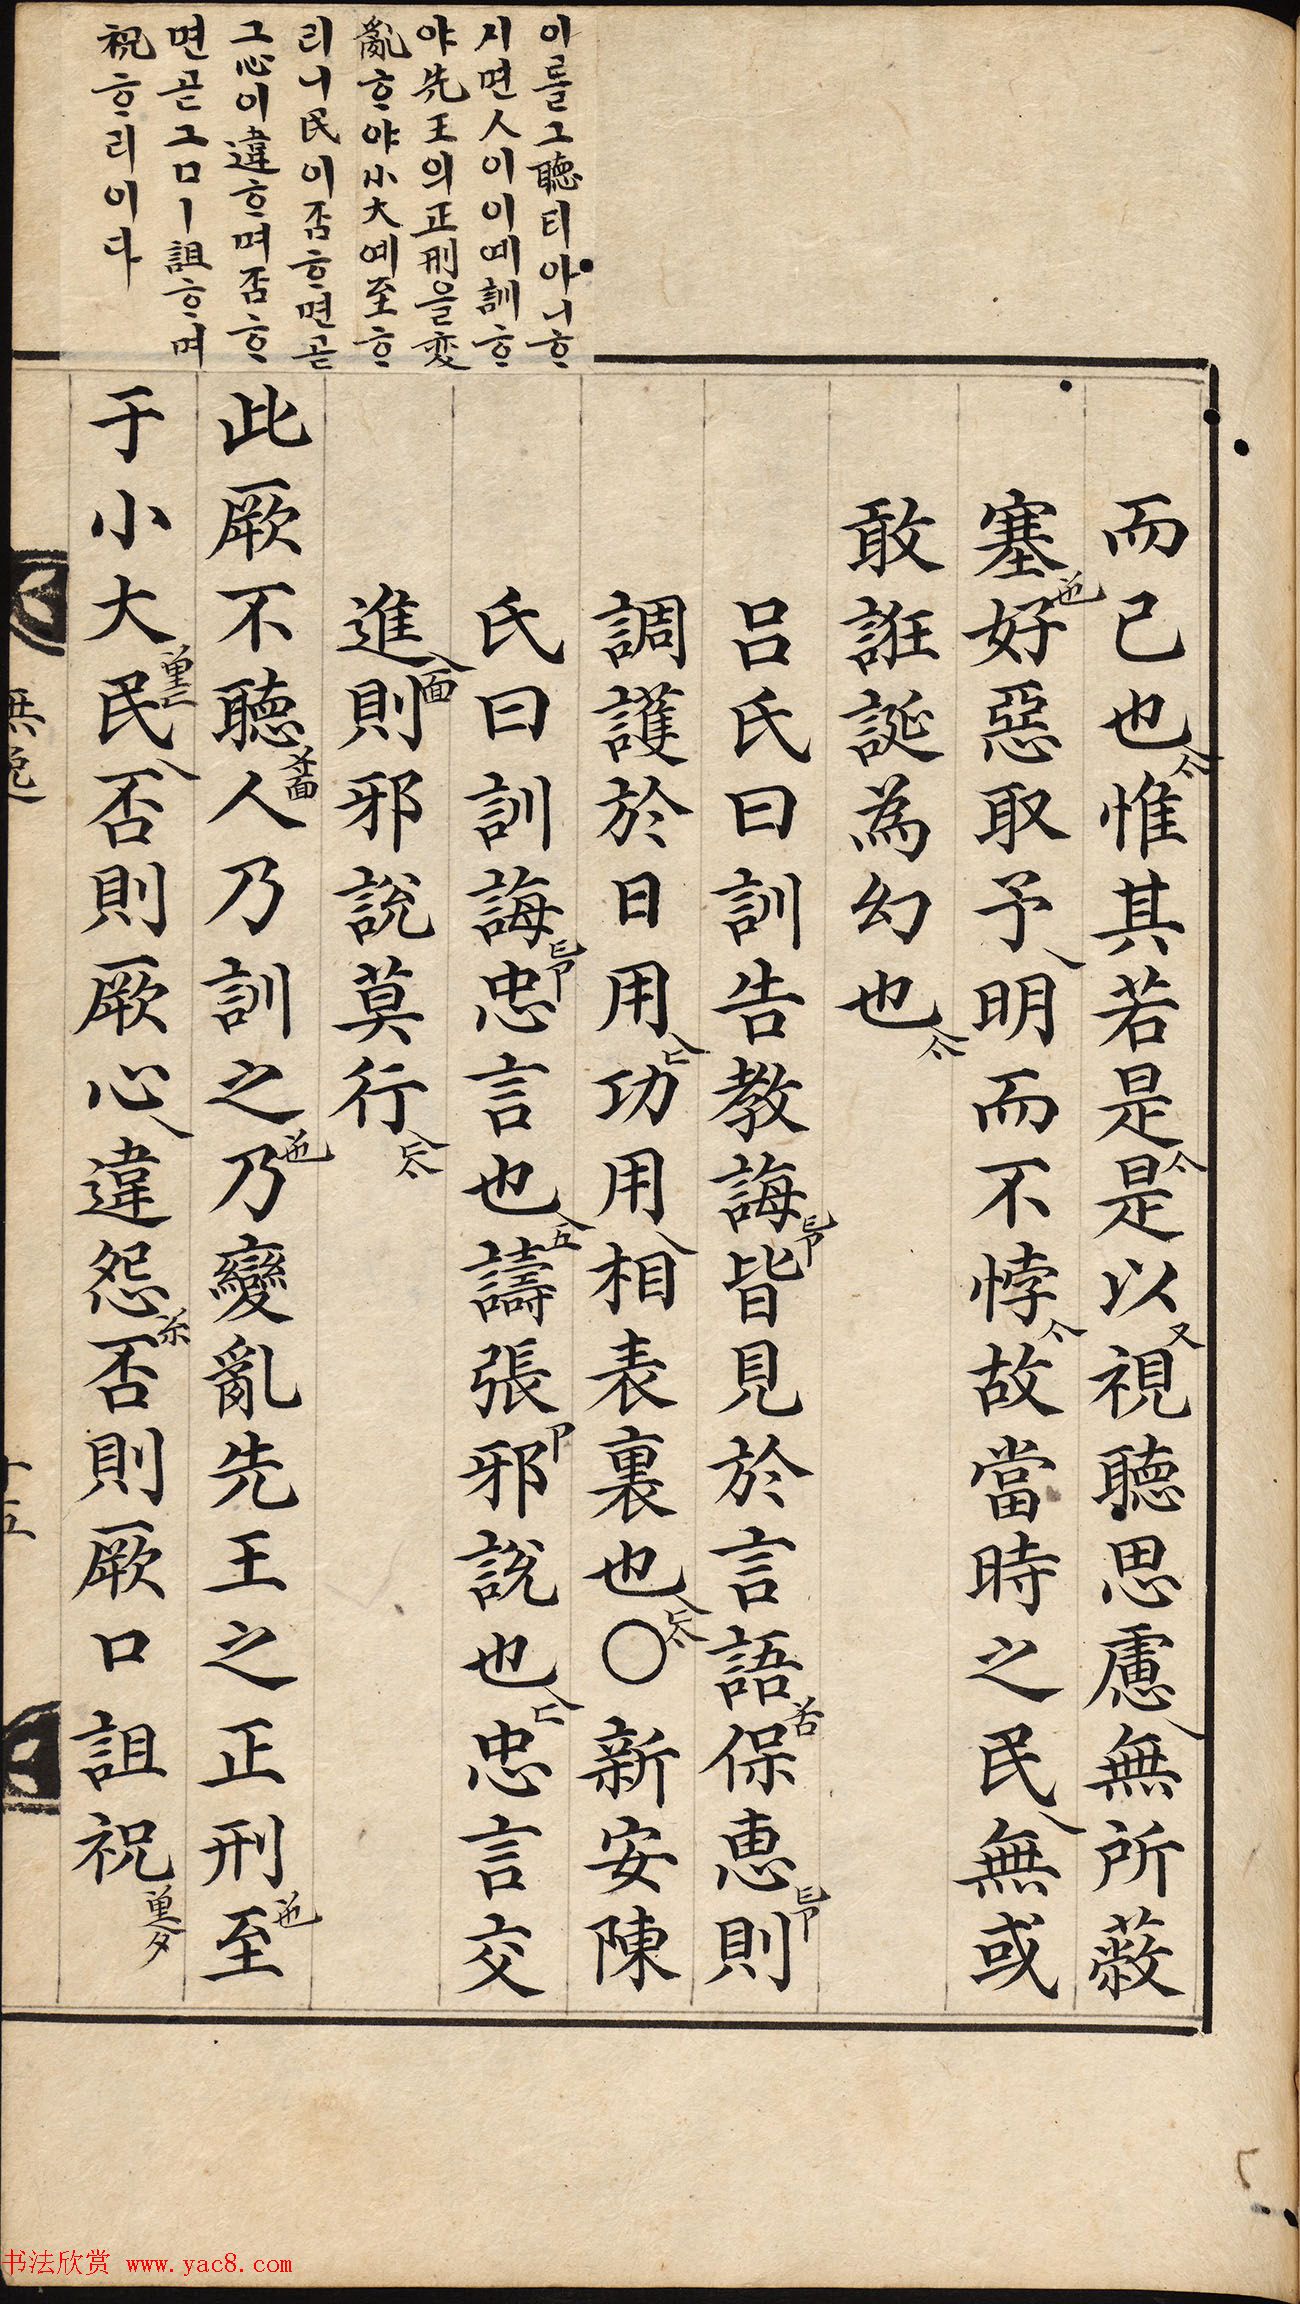 이를그聽티아니ᄒᆞ
시면人이이예訓ᄒᆞ
야先王의正刑을変
亂ᄒᆞ야小大예至ᄒᆞ
리니民이否ᄒᆞ면곧
그心이違ᄒᆞ며否ᄒᆞ
면곧그口ㅣ詛ᄒᆞ며
祝ᄒᆞ리이다
而已也惟其若是是以視聽思慮無所蔽
塞好惡取予明而不悖故當時之民無或
敢誑誕為幻也
呂氏曰訓告教誨皆見於言語保恵則
調護於日用功用相表裏也○新安陳
氏曰訓誨忠言也譸張邪說也忠言交
進則邪說莫行
此厥不聽人乃訓之乃變亂先王之正刑至
于小大民否則厥心違怨否則厥口詛祝
無逸
十五
书法欣赏 www.yac8.com